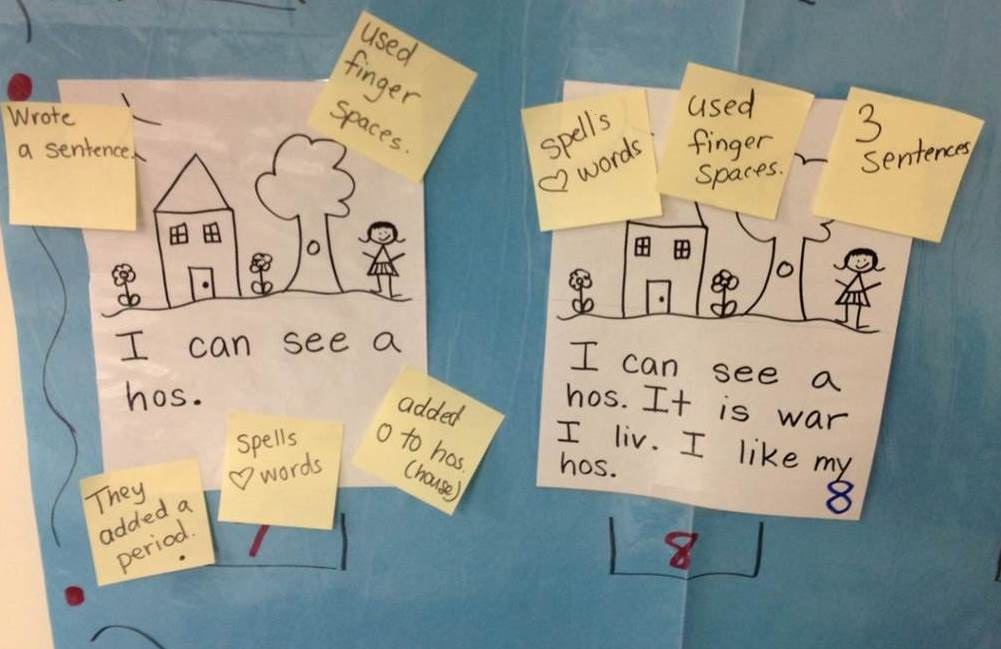 Wrote
a sentence.
used
finger
spaces.
I can see a
hos.
They
added a
period.
spells
♡ words
added
o to hos.
(house)
spells
♡ words
used
finger
spaces.
3
sentences
I can see a
hos. It is war
I liv. I like my
hos.
8
8